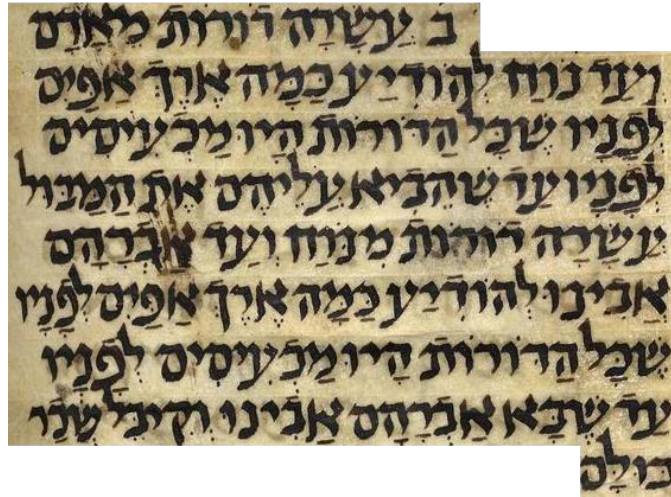 ב עשרה דורות מאדם
ועד נוח להודיע כמה ארך אפים
לפניו שכל הדורות היו מכעיסים
לפניו עד שהביא עליהם את המבול
עשרה דורות מנוח ועד אברהם
אבינו להודיע כמה ארך אפים לפניו
שכל הדורות היו מכעיסים לפניו
עד שבא אברהם אבינו וקיבל שכר
כולם